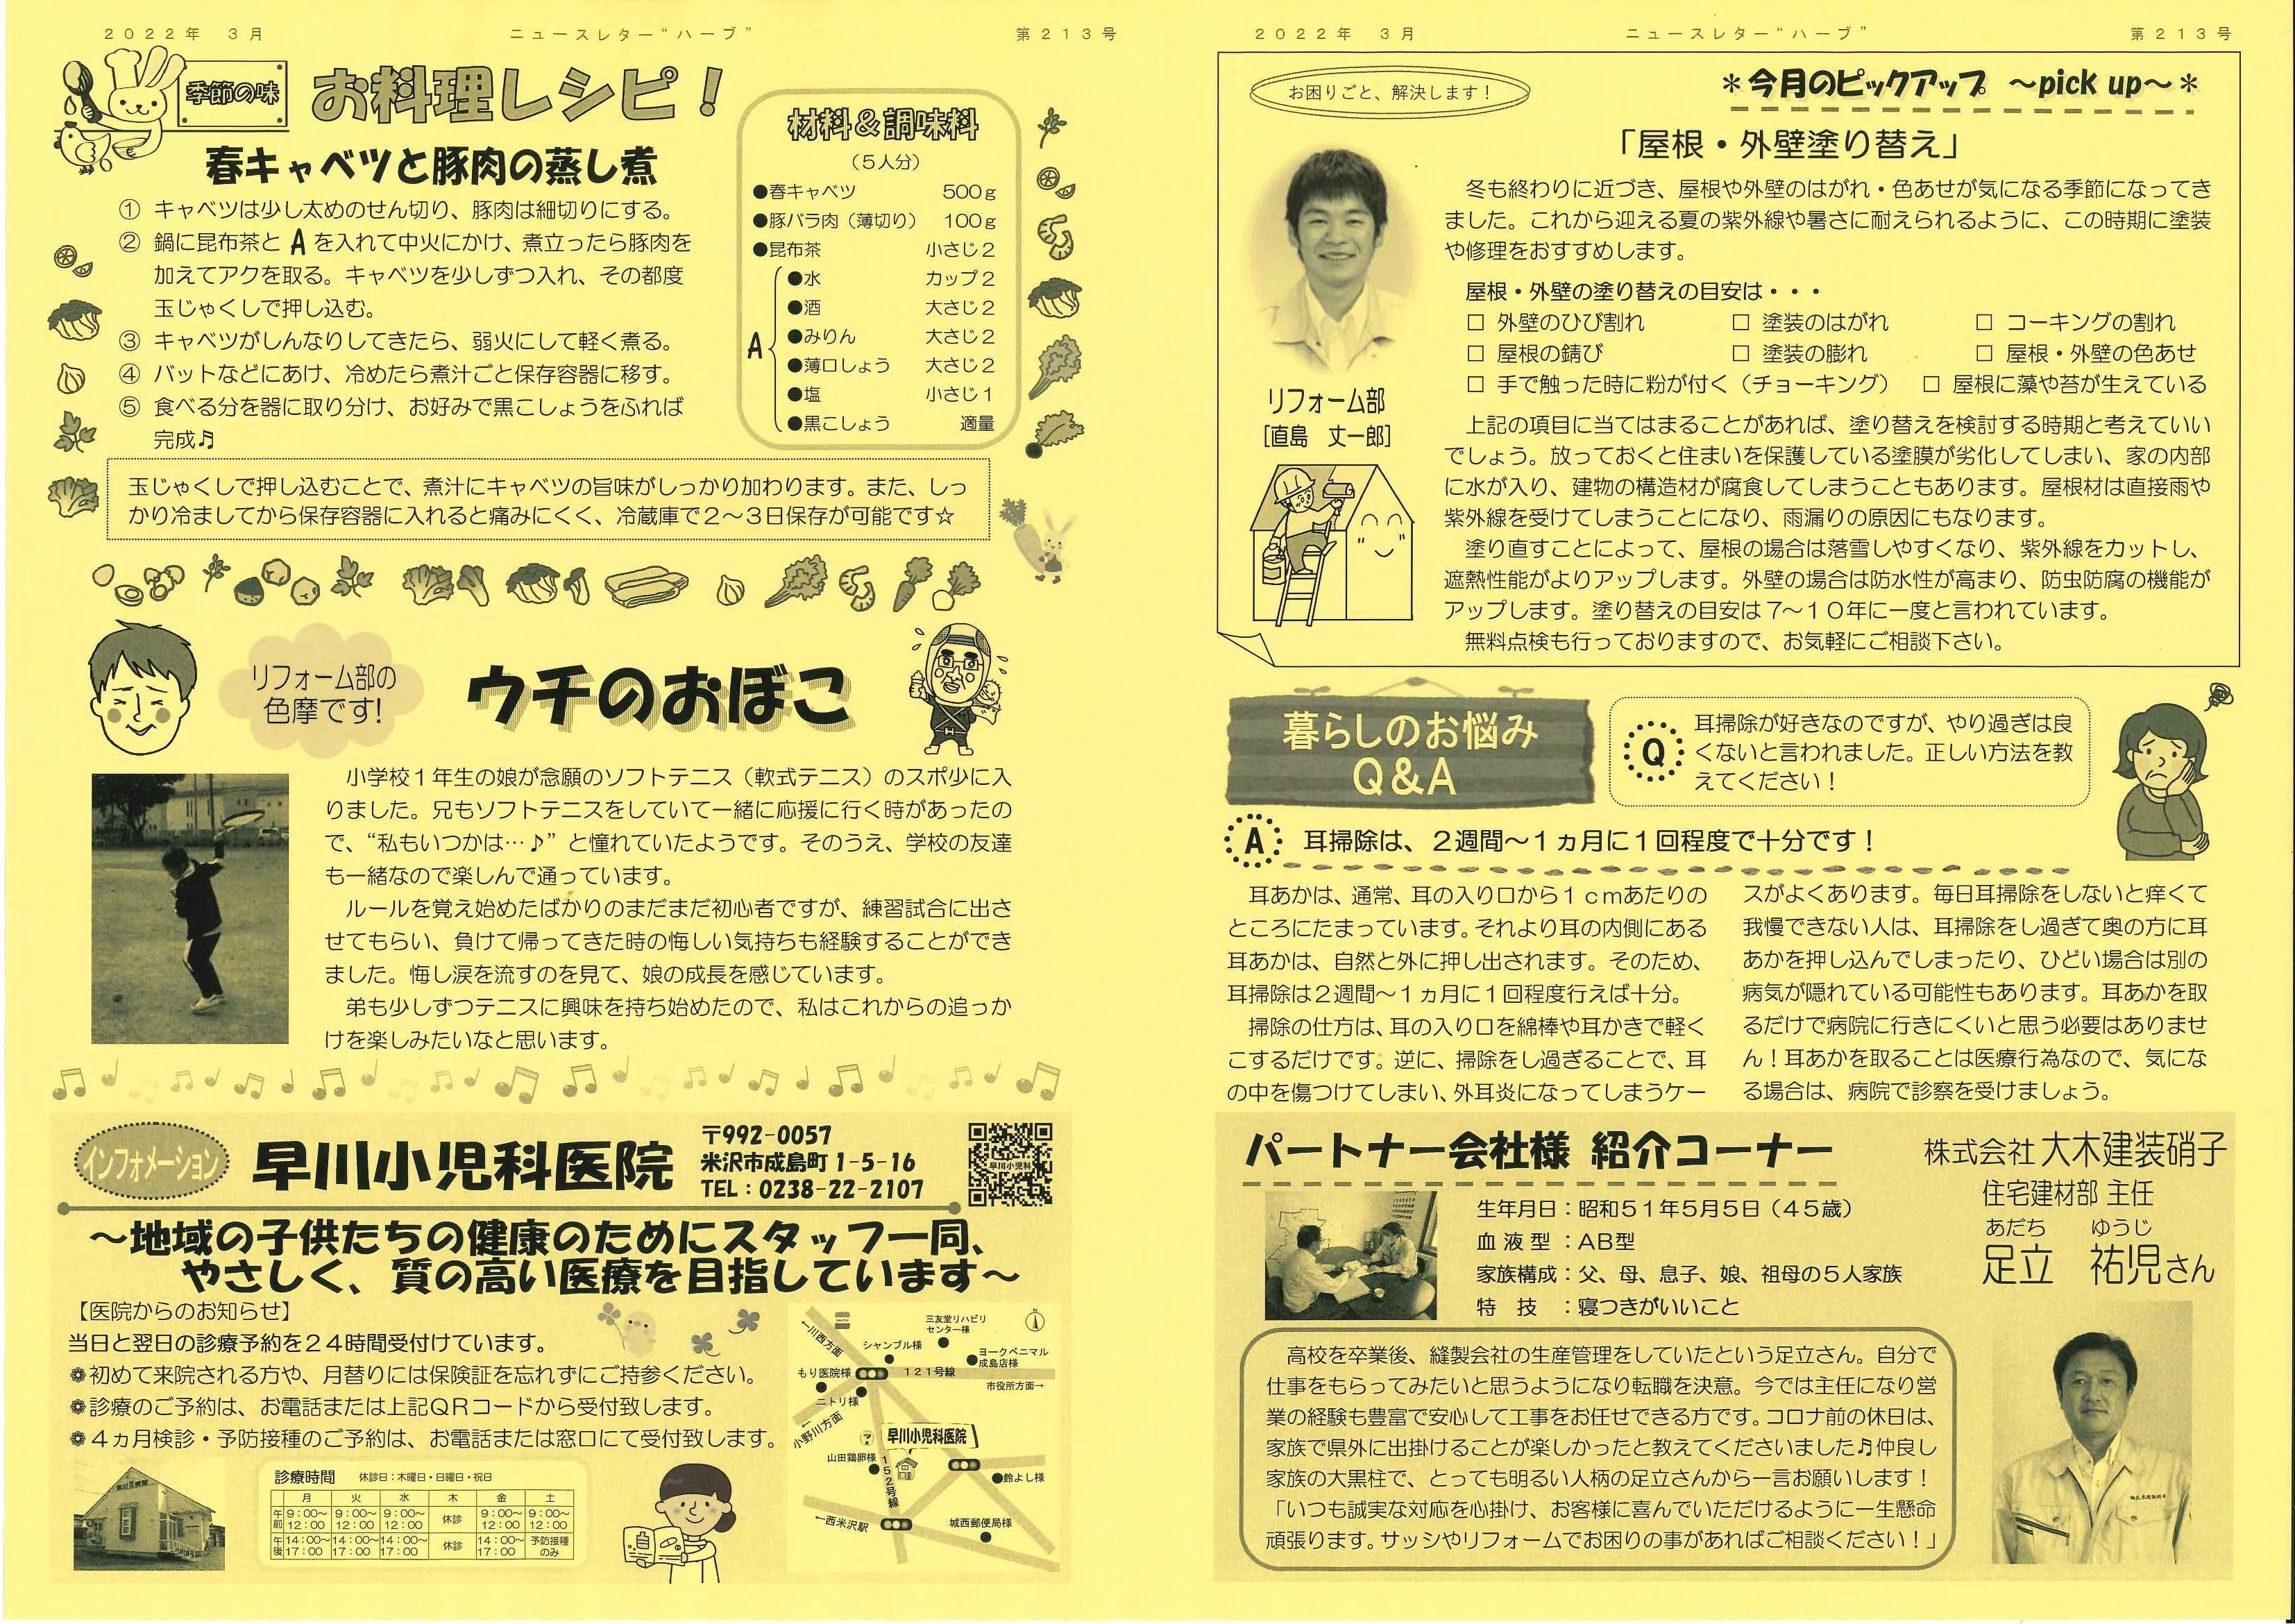 2022年 3月 ニュースレター“ハーブ” 第213号
季節の味 お料理レシピ！
春キャベツと豚肉の蒸し煮
① キャベツは少し太めのせん切り、豚肉は細切りにする。
② 鍋に昆布茶と A を入れて中火にかけ、煮立ったら豚肉を
加えてアクを取る。キャベツを少しずつ入れ、その都度
玉じゃくしで押し込む。
③ キャベツがしんなりしてきたら、弱火にして軽く煮る。
④ バットなどにあけ、冷めたら煮汁ごと保存容器に移す。
⑤ 食べる分を器に取り分け、お好みで黒こしょうをふれば
完成♬
材料＆調味料
（5人分）
●春キャベツ 500g
●豚バラ肉（薄切り） 100g
●昆布茶 小さじ2
A
●水 カップ2
●酒 大さじ2
●みりん 大さじ2
●薄口しょう 大さじ2
●塩 小さじ1
●黒こしょう 適量
玉じゃくしで押し込むことで、煮汁にキャベツの旨味がしっかり加わります。また、しっ
かり冷ましてから保存容器に入れると痛みにくく、冷蔵庫で2～3日保存が可能です☆
リフォーム部の
色摩です！
ウチのおぼこ
小学校1年生の娘が念願のソフトテニス（軟式テニス）のスポ少に入
りました。兄もソフトテニスをしていて一緒に応援に行く時があったの
で、“私もいつかは…♪”と憧れていたようです。そのうえ、学校の友達
も一緒なので楽しんで通っています。
ルールを覚え始めたばかりのまだまだ初心者ですが、練習試合に出さ
せてもらい、負けて帰ってきた時の悔しい気持ちも経験することができ
ました。悔し涙を流すのを見て、娘の成長を感じています。
弟も少しずつテニスに興味を持ち始めたので、私はこれからの追っか
けを楽しみたいなと思います。
インフォメーション
早川小児科医院
〒992-0057
米沢市成島町 1-5-16
TEL：0238-22-2107
早川小児科
～地域の子供たちの健康のためにスタッフ一同、
やさしく、質の高い医療を目指しています～
【医院からのお知らせ】
当日と翌日の診療予約を24時間受付けています。
❁初めて来院される方や、月替りには保険証を忘れずにご持参ください。
❁診療のご予約は、お電話または上記QRコードから受付致します。
❁4ヵ月検診・予防接種のご予約は、お電話または窓口にて受付致します。
診療時間 休診日：木曜日・日曜日・祝日
月 火 水 木 金 土
午前 9：00～12：00 9：00～12：00 9：00～12：00 休診 9：00～12：00 9：00～12：00
午後 14：00～17：00 14：00～17：00 14：00～17：00 休診 14：00～17：00 予防接種のみ
N
三友堂リハビリ
センター様
←川西方面
シャンブル様
ヨークベニマル
成島店様
もり医院様
121号線
市役所方面→
ニトリ様
←小野川方面
早川小児科医院
山田鶏卵様
152号線
鈴よし様
←西米沢駅
城西郵便局様
2022年 3月 ニュースレター“ハーブ” 第213号
お困りごと、解決します！
＊今月のピックアップ ～pick up～＊
「屋根・外壁塗り替え」
冬も終わりに近づき、屋根や外壁のはがれ・色あせが気になる季節になってき
ました。これから迎える夏の紫外線や暑さに耐えられるように、この時期に塗装
や修理をおすすめします。
屋根・外壁の塗り替えの目安は・・・
□ 外壁のひび割れ □ 塗装のはがれ □ コーキングの割れ
□ 屋根の錆び □ 塗装の膨れ □ 屋根・外壁の色あせ
□ 手で触った時に粉が付く（チョーキング） □ 屋根に藻や苔が生えている
リフォーム部
[直島 丈一郎]
上記の項目に当てはまることがあれば、塗り替えを検討する時期と考えていい
でしょう。放っておくと住まいを保護している塗膜が劣化してしまい、家の内部
に水が入り、建物の構造材が腐食してしまうこともあります。屋根材は直接雨や
紫外線を受けてしまうことになり、雨漏りの原因にもなります。
塗り直すことによって、屋根の場合は落雪しやすくなり、紫外線をカットし、
遮熱性能がよりアップします。外壁の場合は防水性が高まり、防虫防腐の機能が
アップします。塗り替えの目安は7～10年に一度と言われています。
無料点検も行っておりますので、お気軽にご相談下さい。
暮らしのお悩み
Q＆A
Q
耳掃除が好きなのですが、やり過ぎは良
くないと言われました。正しい方法を教
えてください！
A 耳掃除は、2週間～1ヵ月に1回程度で十分です！
耳あかは、通常、耳の入り口から1cmあたりの
ところにたまっています。それより耳の内側にある
耳あかは、自然と外に押し出されます。そのため、
耳掃除は2週間～1ヵ月に1回程度行えば十分。
掃除の仕方は、耳の入り口を綿棒や耳かきで軽く
こするだけです。逆に、掃除をし過ぎることで、耳
の中を傷つけてしまい、外耳炎になってしまうケー
スがよくあります。毎日耳掃除をしないと痒くて
我慢できない人は、耳掃除をし過ぎて奥の方に耳
あかを押し込んでしまったり、ひどい場合は別の
病気が隠れている可能性もあります。耳あかを取
るだけで病院に行きにくいと思う必要はありませ
ん！耳あかを取ることは医療行為なので、気にな
る場合は、病院で診察を受けましょう。
パートナー会社様 紹介コーナー
株式会社 大木建装硝子
住宅建材部 主任
あだち ゆうじ
足立 祐児さん
生年月日：昭和51年5月5日（45歳）
血液型：AB型
家族構成：父、母、息子、娘、祖母の5人家族
特技：寝つきがいいこと
高校を卒業後、縫製会社の生産管理をしていたという足立さん。自分で
仕事をもらってみたいと思うようになり転職を決意。今では主任になり営
業の経験も豊富で安心して工事をお任せできる方です。コロナ前の休日は、
家族で県外に出掛けることが楽しかったと教えてくださいました♬仲良し
家族の大黒柱で、とっても明るい人柄の足立さんから一言お願いします！
「いつも誠実な対応を心掛け、お客様に喜んでいただけるように一生懸命
頑張ります。サッシやリフォームでお困りの事があればご相談ください！」